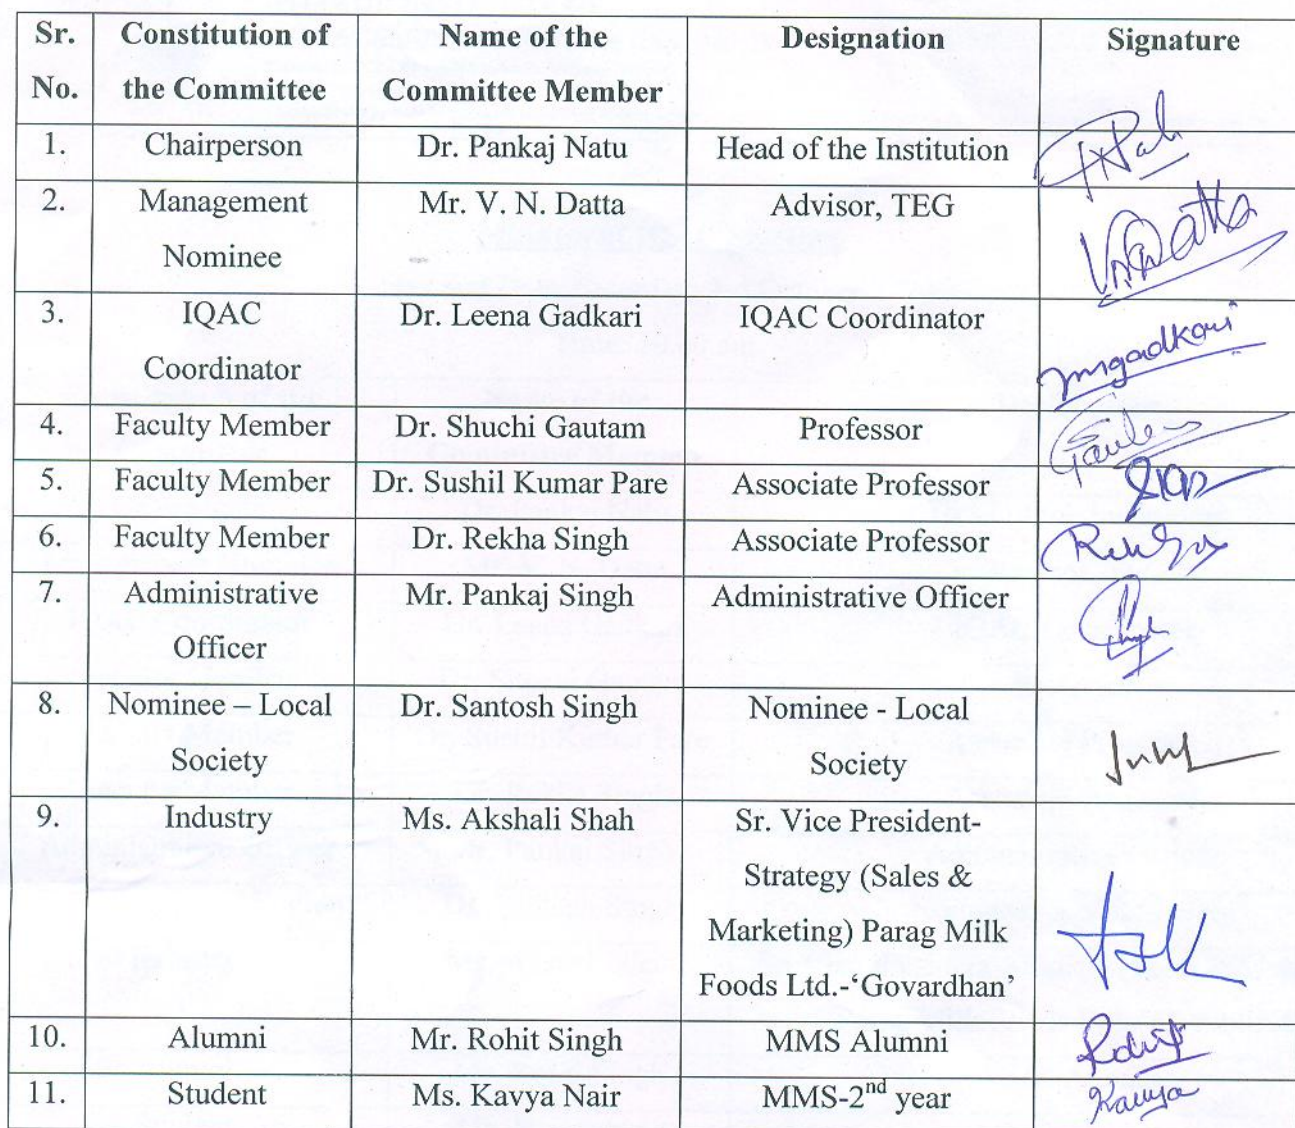 Sr. No. Constitution of the Committee Name of the Committee Member Designation Signature
1. Chairperson Dr. Pankaj Natu Head of the Institution
2. Management Nominee Mr. V. N. Datta Advisor, TEG V.N.Datta
3. IQAC Coordinator Dr. Leena Gadkari IQAC Coordinator lmgadkari
4. Faculty Member Dr. Shuchi Gautam Professor Gautam
5. Faculty Member Dr. Sushil Kumar Pare Associate Professor
6. Faculty Member Dr. Rekha Singh Associate Professor
7. Administrative Officer Mr. Pankaj Singh Administrative Officer
8. Nominee – Local Society Dr. Santosh Singh Nominee - Local Society
9. Industry Ms. Akshali Shah Sr. Vice President- Strategy (Sales & Marketing) Parag Milk Foods Ltd.-‘Govardhan’
10. Alumni Mr. Rohit Singh MMS Alumni Rohit
11. Student Ms. Kavya Nair MMS-2nd year Kavya